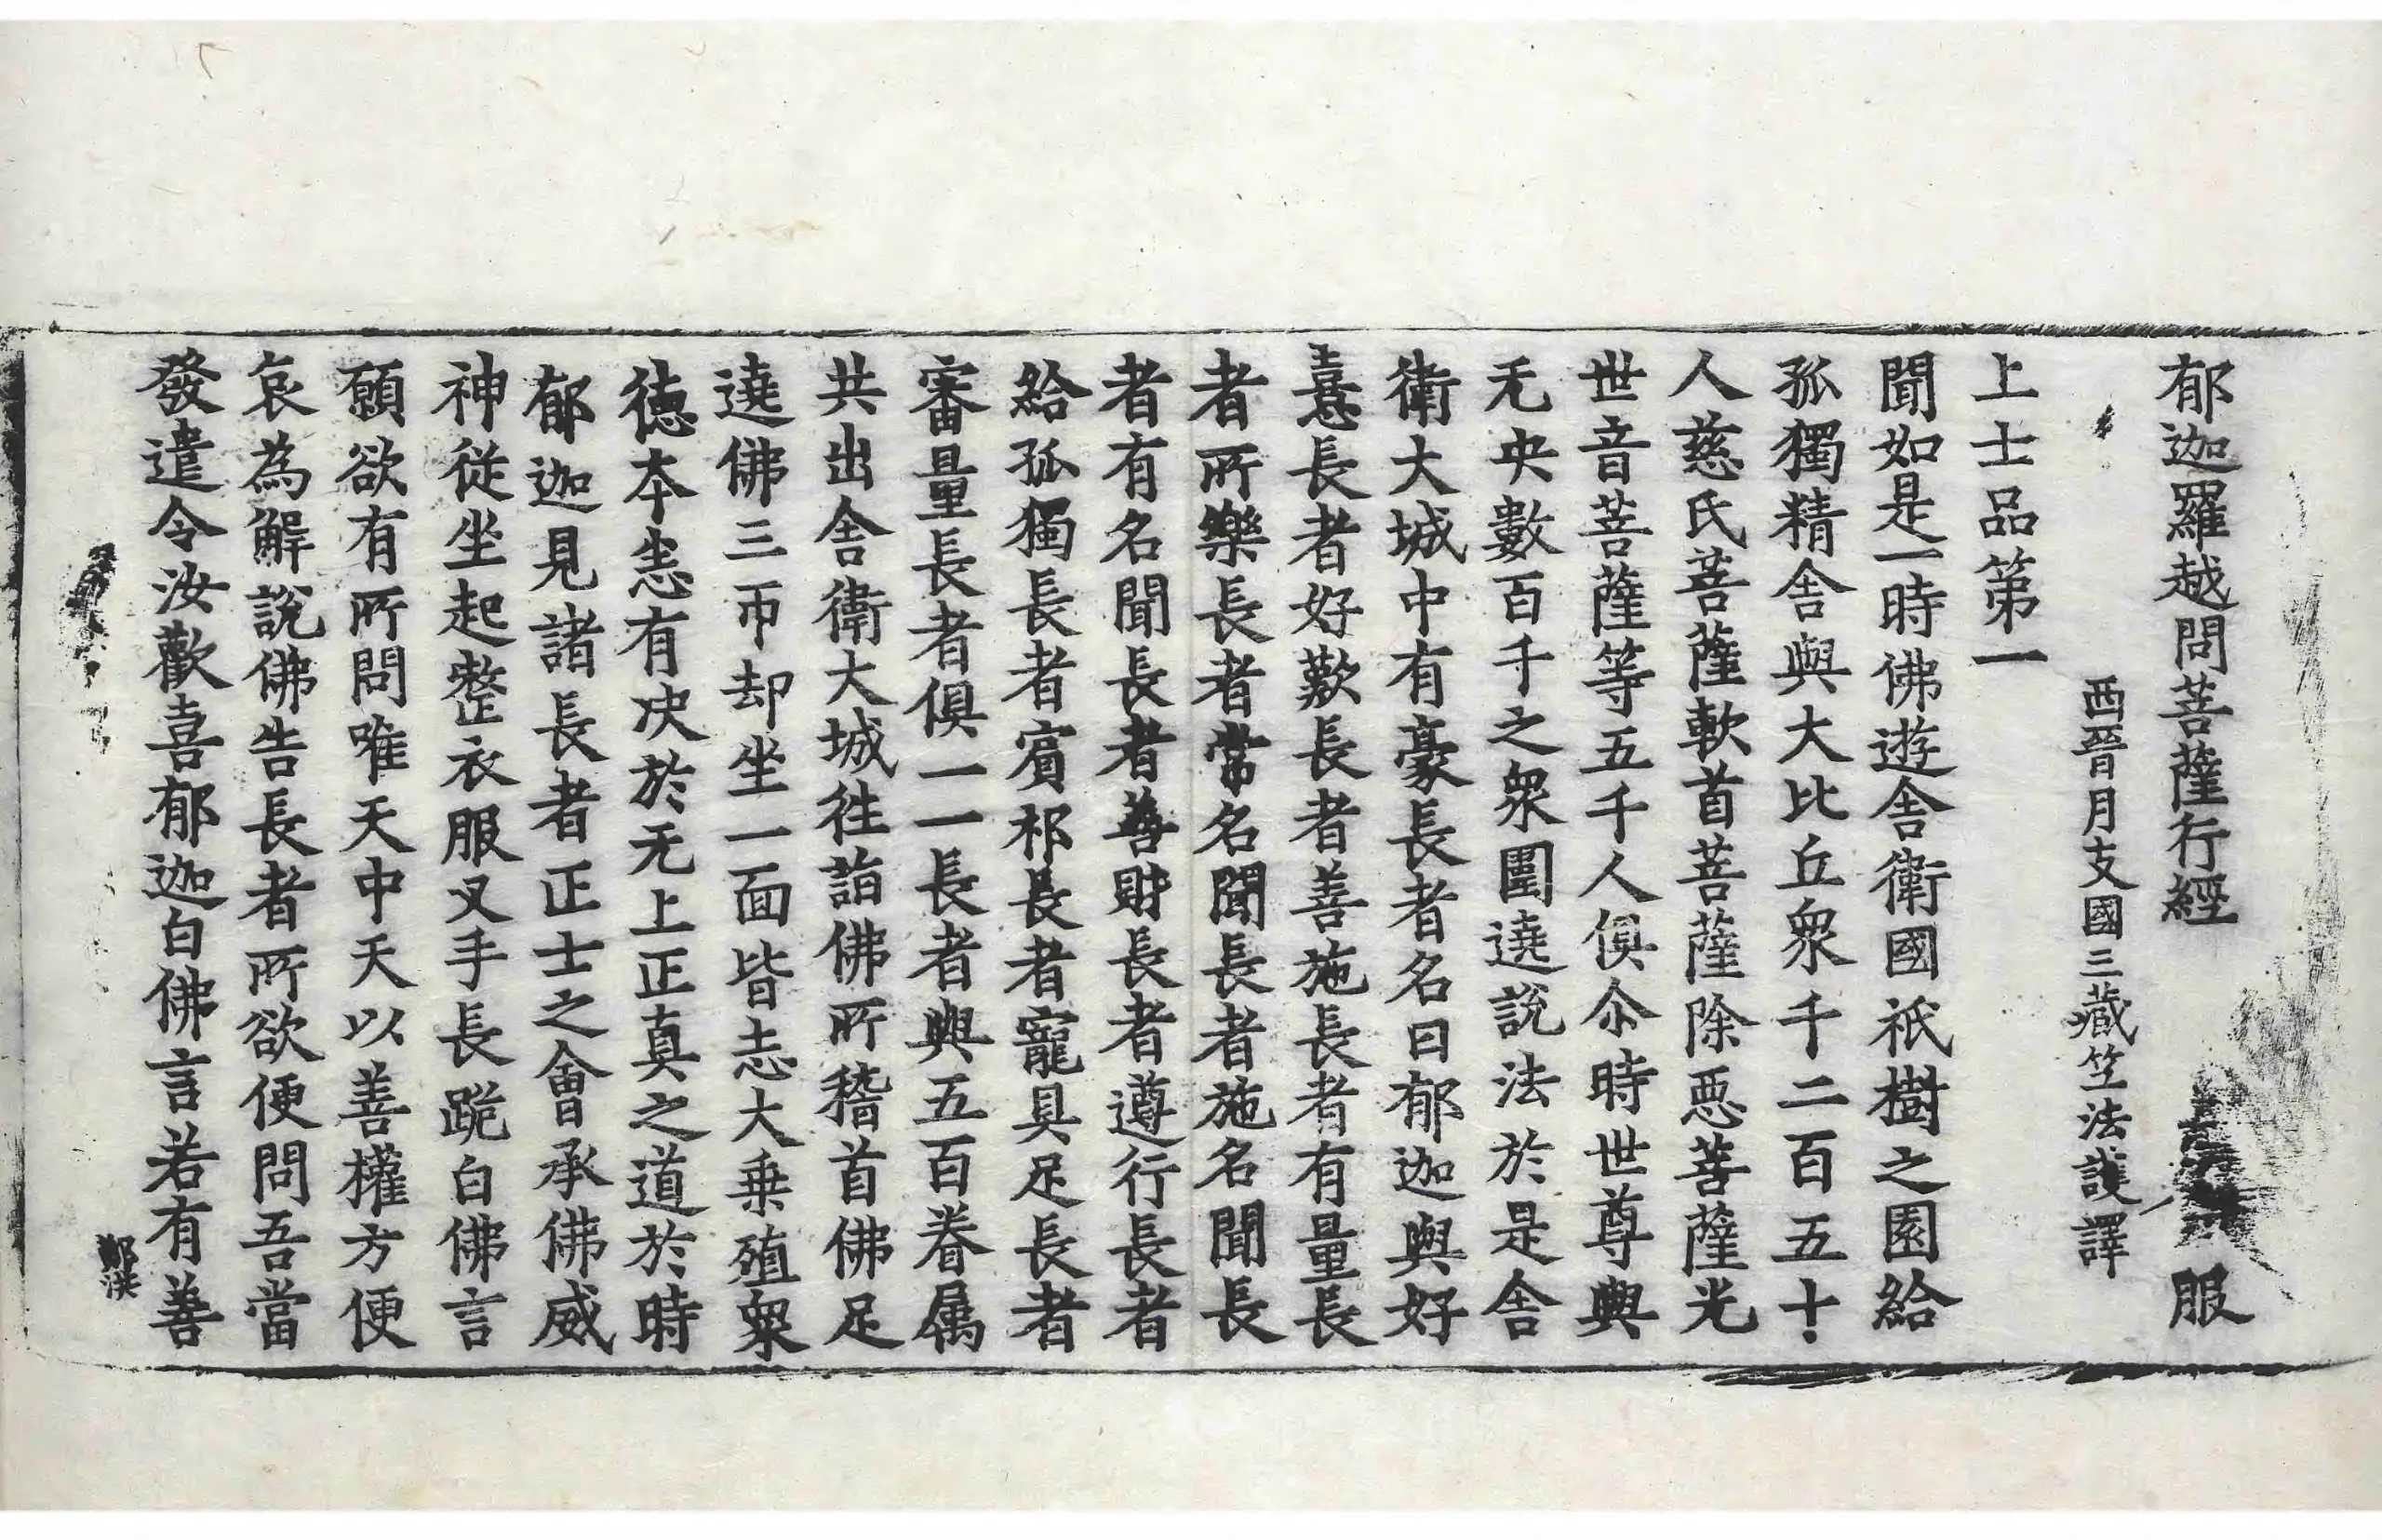 郁迦羅越問菩薩行經 服
西晉月支國三藏竺法護譯
上士品第一
聞如是一時佛遊舍衛國祇樹之園給
孤獨精舍與大比丘眾千二百五十
人慈氏菩薩軟首菩薩除惡菩薩光
世音菩薩等五千人俱尒時世尊與
无央數百千之眾圍遶說法於是舍
衛大城中有豪長者名曰郁迦與好
憙長者好歎長者善施長者有量長
者所樂長者常名聞長者施名聞長
者有名聞長者善財長者遵行長者
給孤獨長者賓祁長者寵具足長者
審量長者俱一一長者與五百眷属
共出舍衛大城往詣佛所稽首佛足
遶佛三帀却坐一面皆志大乗殖眾
徳本恙有决於无上正真之道於時
郁迦見諸長者正士之會承佛威
神從坐起整衣服叉手長跪白佛言
願欲有所問唯天中天以善權方便
哀為解說佛告長者所欲便問吾當
發遣令汝歡喜郁迦白佛言若有善